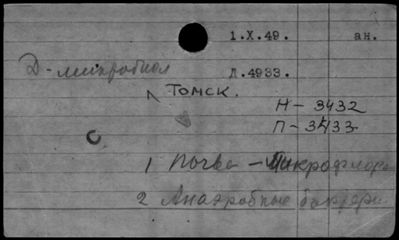 1.X.49. ан.
Д-микробиол
Л.4933.
Томск.
Н-3432
П-3433
С
1 Почва - Микрофлора
2 Анаэробные бактери